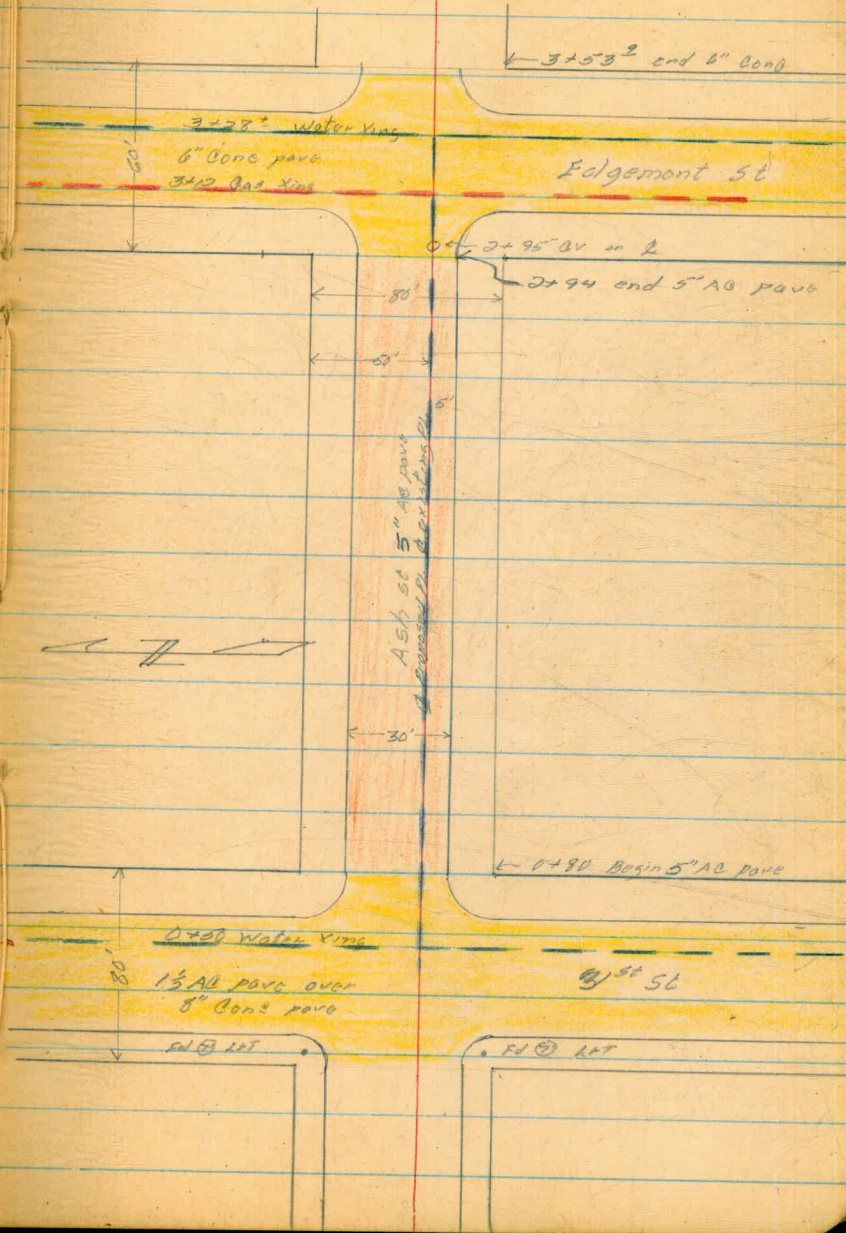 3+53⁹ end 6" Conc
60'
3+28± Water Xing
6" Conc pave
3+12 Gas Xing
Edgemont St
2+95 GV on ℄
2+94 end 5" AC pave
80'
50'
5'
Ash St 5" AC pave
℄ Proposed PL & existing PL
30'
0+80 Begin 5" AC pave
0+50 Water Xing
80'
1½ AC pave over
8" Conc pave
31st St
Fd L&T
Fd L&T